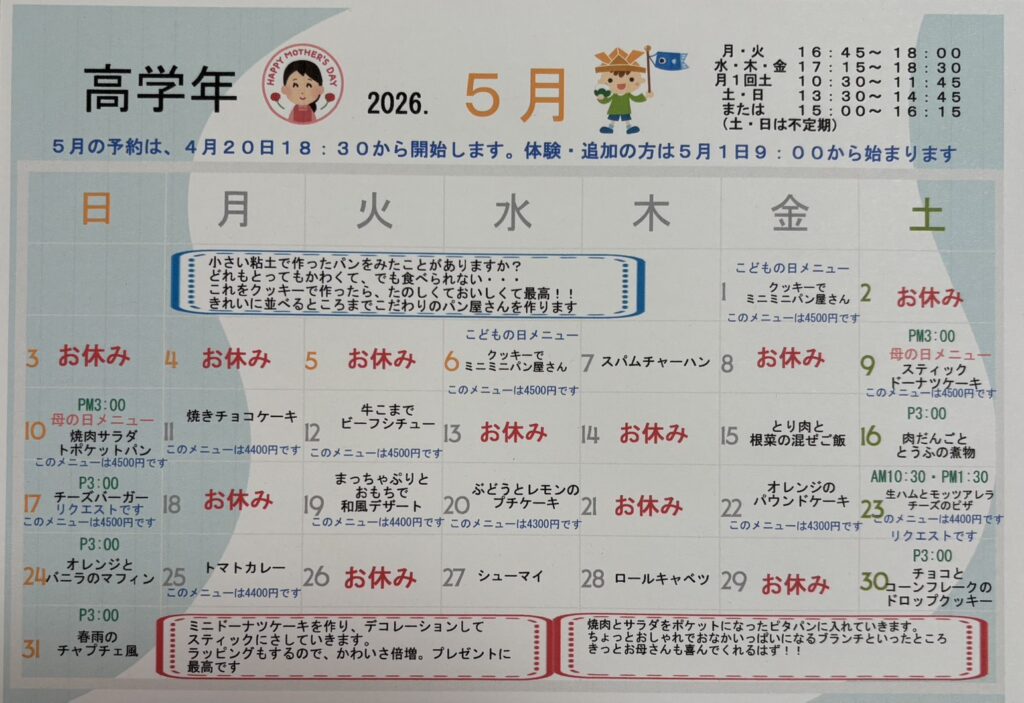 高学年
HAPPY MOTHER'S DAY
2026.
5月
月・火 16:45～18:00
水・木・金 17:15～18:30
月1回土 10:30～11:45
土・日 13:30～14:45
または 15:00～16:15
(土・日は不定期)
5月の予約は、4月20日18:30から開始します。体験・追加の方は5月1日9:00から始まります
日 月 火 水 木 金 土
小さい粘土で作ったパンをみたことがありますか?
どれもとってもかわくて、でも食べられない・・・
これをクッキーで作ったら、たのしくておいしくて最高!!
きれいに並べるところまでこだわりのパン屋さんを作ります
こどもの日メニュー
1 クッキーで
ミニミニパン屋さん
このメニューは4500円です
2 お休み
3 お休み
4 お休み
5 お休み
こどもの日メニュー
6 クッキーで
ミニミニパン屋さん
このメニューは4500円です
7 スパムチャーハン
8 お休み
PM3:00
母の日メニュー
9 スティック
ドーナツケーキ
このメニューは4500円です
PM3:00
母の日メニュー
10 焼肉サラダ
トポケットパン
このメニューは4500円です
11 焼きチョコケーキ
このメニューは4400円です
12 牛こまで
ビーフシチュー
このメニューは4500円です
13 お休み
14 お休み
15 とり肉と
根菜の混ぜご飯
P3:00
16 肉だんごと
とうふの煮物
P3:00
17 チーズバーガー
リクエストです
このメニューは4500円です
18 お休み
19 まっちゃぷりと
おもちで
和風デザート
このメニューは4400円です
20 ぶどうとレモンの
プチケーキ
このメニューは4300円です
21 お休み
22 オレンジの
パウンドケーキ
このメニューは4300円です
AM10:30・PM1:30
23 生ハムとモッツアレラ
チーズのピザ
このメニューは4400円です
リクエストです
P3:00
24 オレンジと
バニラのマフィン
25 トマトカレー
このメニューは4400円です
26 お休み
27 シューマイ
28 ロールキャベツ
29 お休み
P3:00
30 チョコと
コーンフレークの
ドロップクッキー
P3:00
31 春雨の
チャプチェ風
ミニドーナツケーキを作り、デコレーションして
スティックにさしていきます。
ラッピングもするので、かわいさ倍増。プレゼントに
最高です
焼肉とサラダをポケットになったピタパンに入れていきます。
ちょっとおしゃれでおなかいっぱいになるブランチといったところ
きっとお母さんも喜んでくれるはず!!